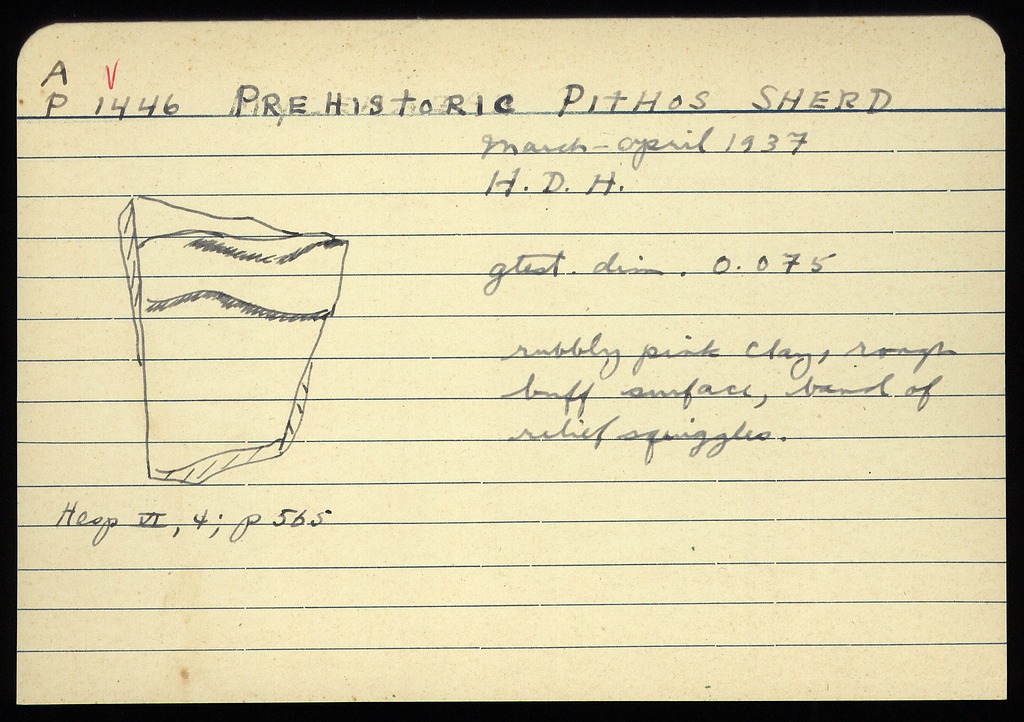 A V
P 1446 PREHISTORIC PITHOS SHERD
March-April 1937
H. D. H.
gtest. dim. 0.075
rubbly pink clay, rough
buff surface, band of
relief squiggles.
Hesp VI, 4; p 565